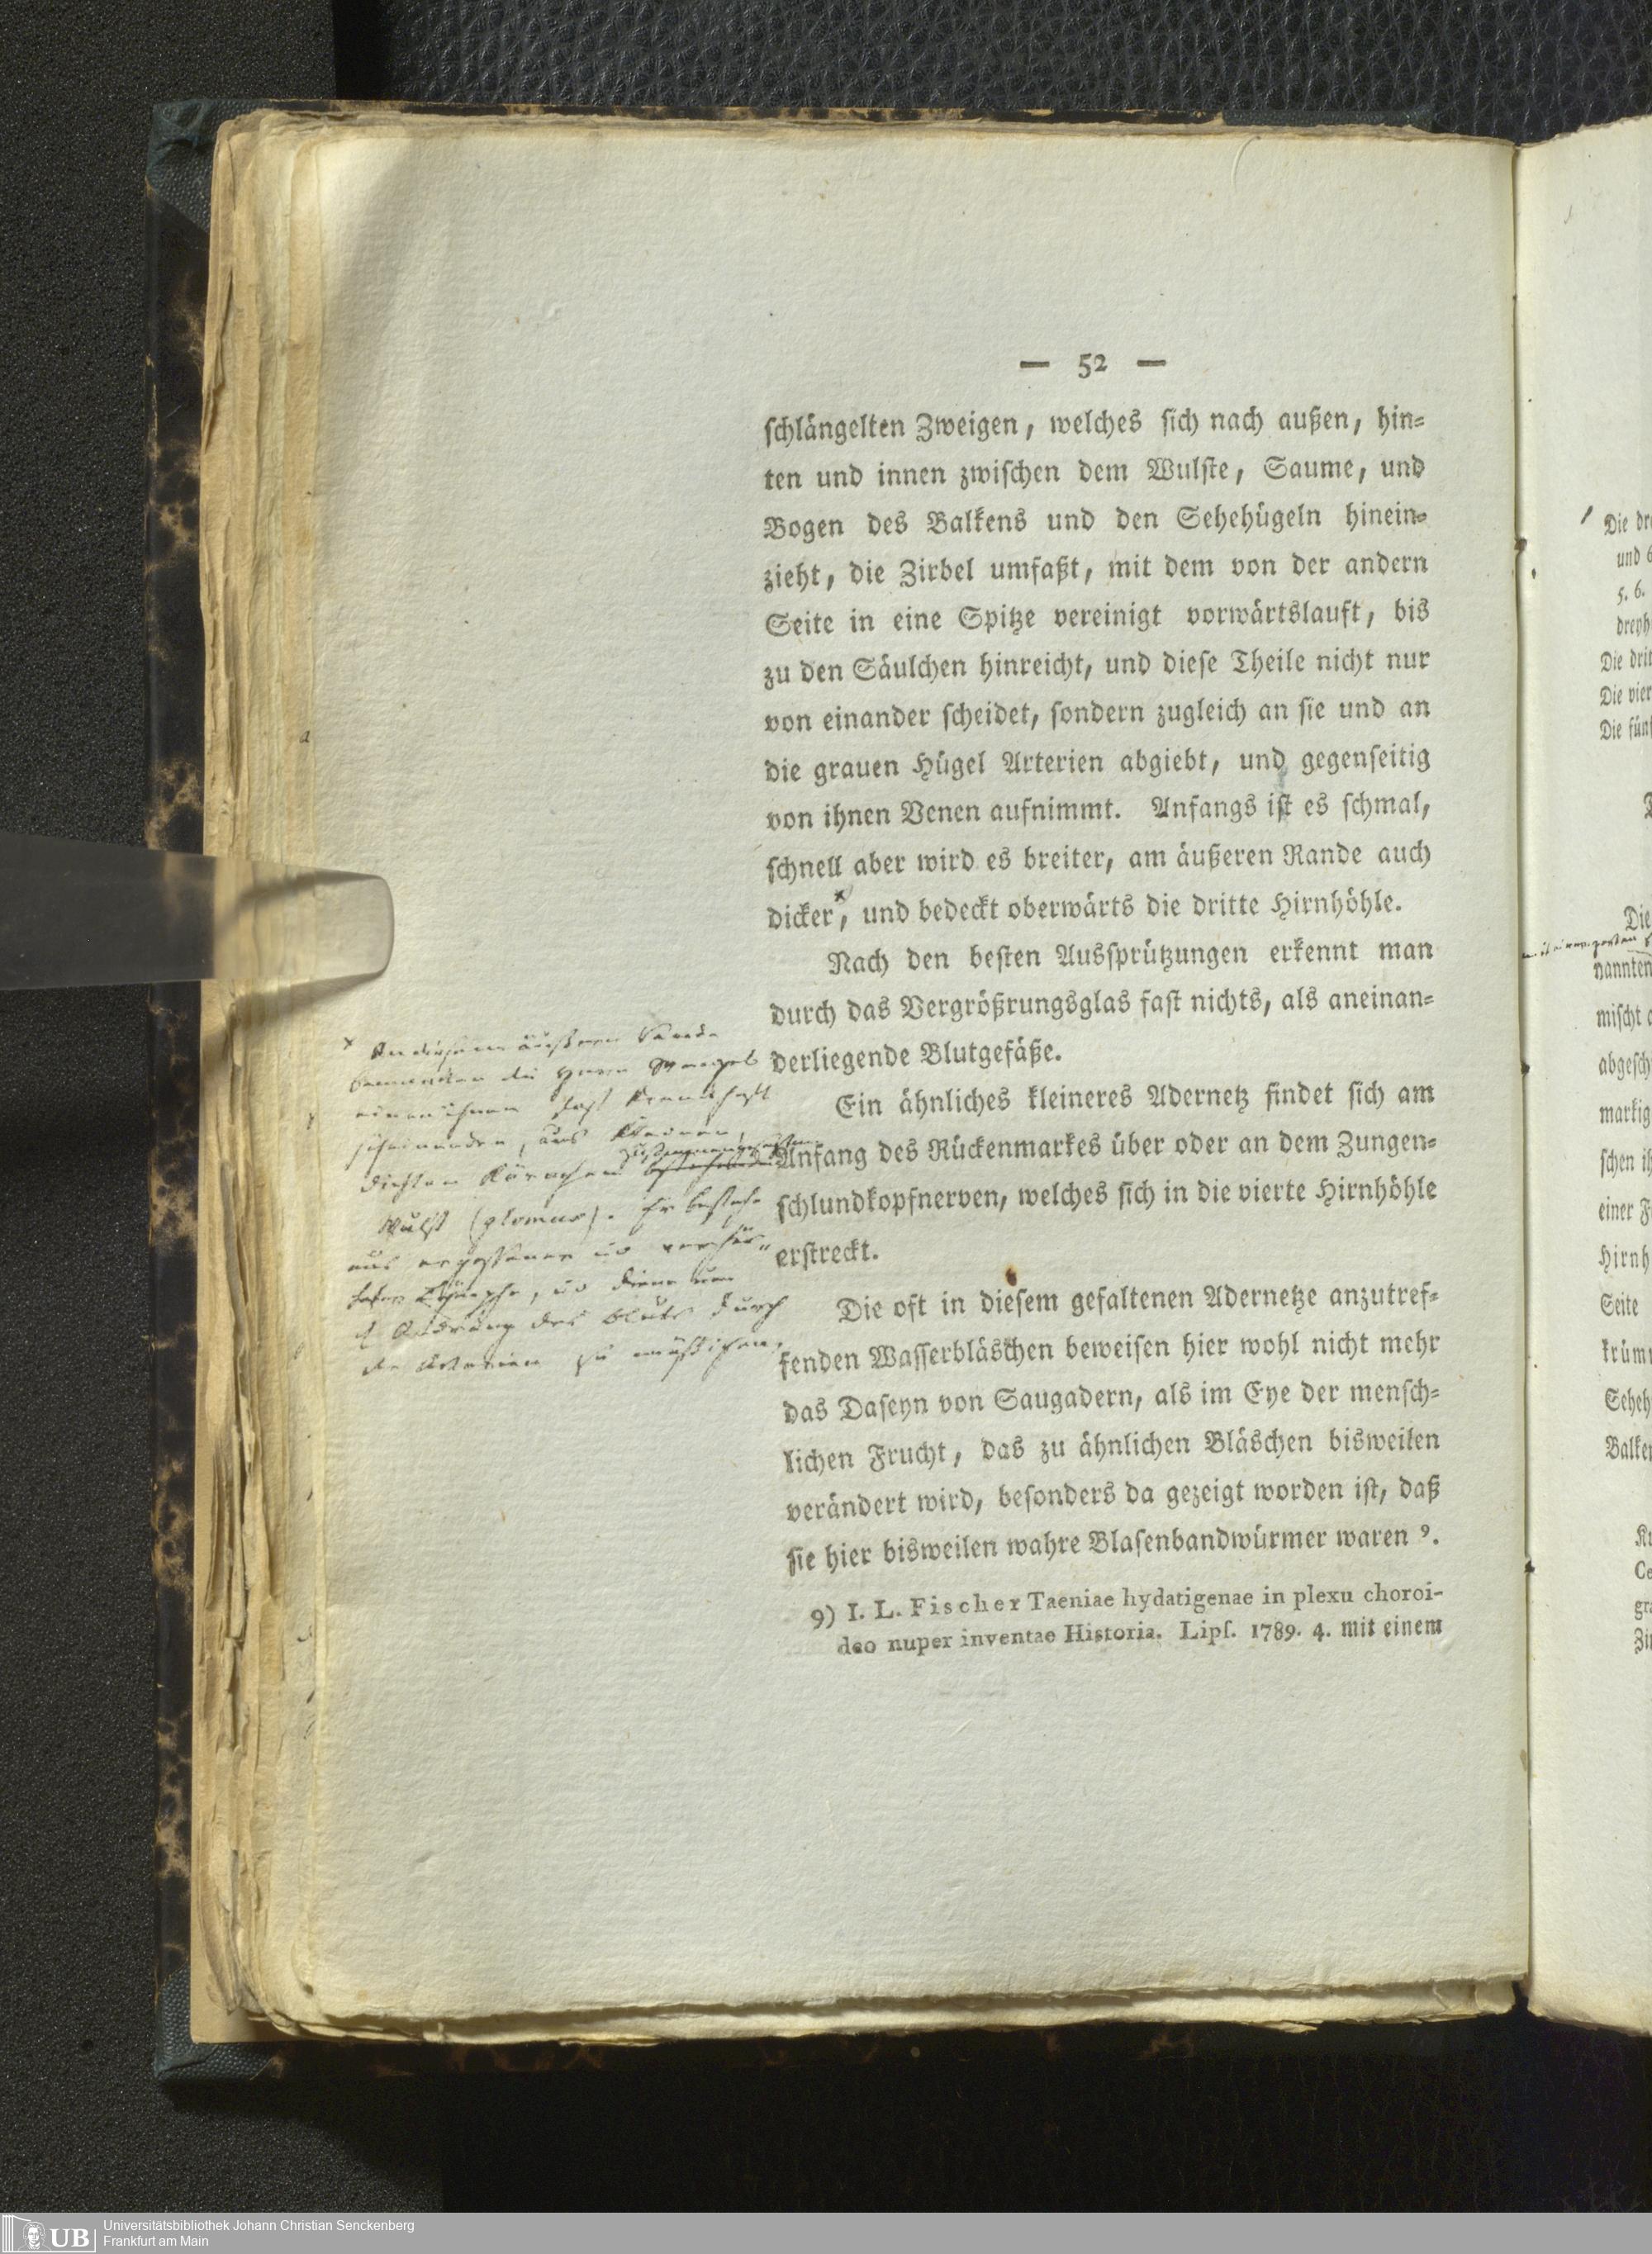 — 52 —
ſchlängelten Zweigen, welches ſich nach außen, hin⸗
ten und innen zwiſchen dem Wulſte, Saume, und
Bogen des Balkens und den Sehehügeln hinein⸗
zieht, die Zirbel umfaßt, mit dem von der andern
Seite in eine Spitze vereinigt vorwärtslauft, bis
zu den Säulchen hinreicht, und dieſe Theile nicht nur
von einander ſcheidet, ſondern zugleich an ſie und an
die grauen Hügel Arterien abgiebt, und gegenſeitig
von ihnen Venen aufnimmt. Anfangs iſt es ſchmal,
ſchnell aber wird es breiter, am äußeren Rande auch
dicker, und bedeckt oberwärts die dritte Hirnhöhle.
Nach den beſten Ausſprützungen erkennt man
durch das Vergrößrungsglas faſt nichts, als aneinan⸗
derliegende Blutgefäße.
Ein ähnliches kleineres Adernetz findet ſich am
Anfang des Rückenmarkes über oder an dem Zungen⸗
ſchlundkopfnerven, welches ſich in die vierte Hirnhöhle
erſtreckt.
Die oft in dieſem gefaltenen Adernetze anzutref⸗
fenden Waſſerbläschen beweiſen hier wohl nicht mehr
das Daſeyn von Saugadern, als im Eye der menſch⸗
lichen Frucht, das zu ähnlichen Bläschen bisweilen
verändert wird, beſonders da gezeigt worden iſt, daß
ſie hier bisweilen wahre Blaſenbandwürmer waren ⁹.
9) I. L. Fischer Taeniae hydatigenae in plexu choroi-
deo nuper inventae Historia. Lipſ. 1789. 4. mit einem
* An diesem äußeren Rande
bemerken die Herrn Wenzel
einen ihnen fast krankhaft
scheinenden, aus kleinen,
dichten Körnchen
Wulst (glomus). Er bestehe
aus ergossener
Lymphe, diene um
Andrang des Bluts durch
die Arterien zu mäßigen.
Die
und
5. 6.
Die
Die
Die
Die
nannten
miſcht
markig
einer
Hirnh
Seite
UB
Universitätsbibliothek Johann Christian Senckenberg
Frankfurt am Main